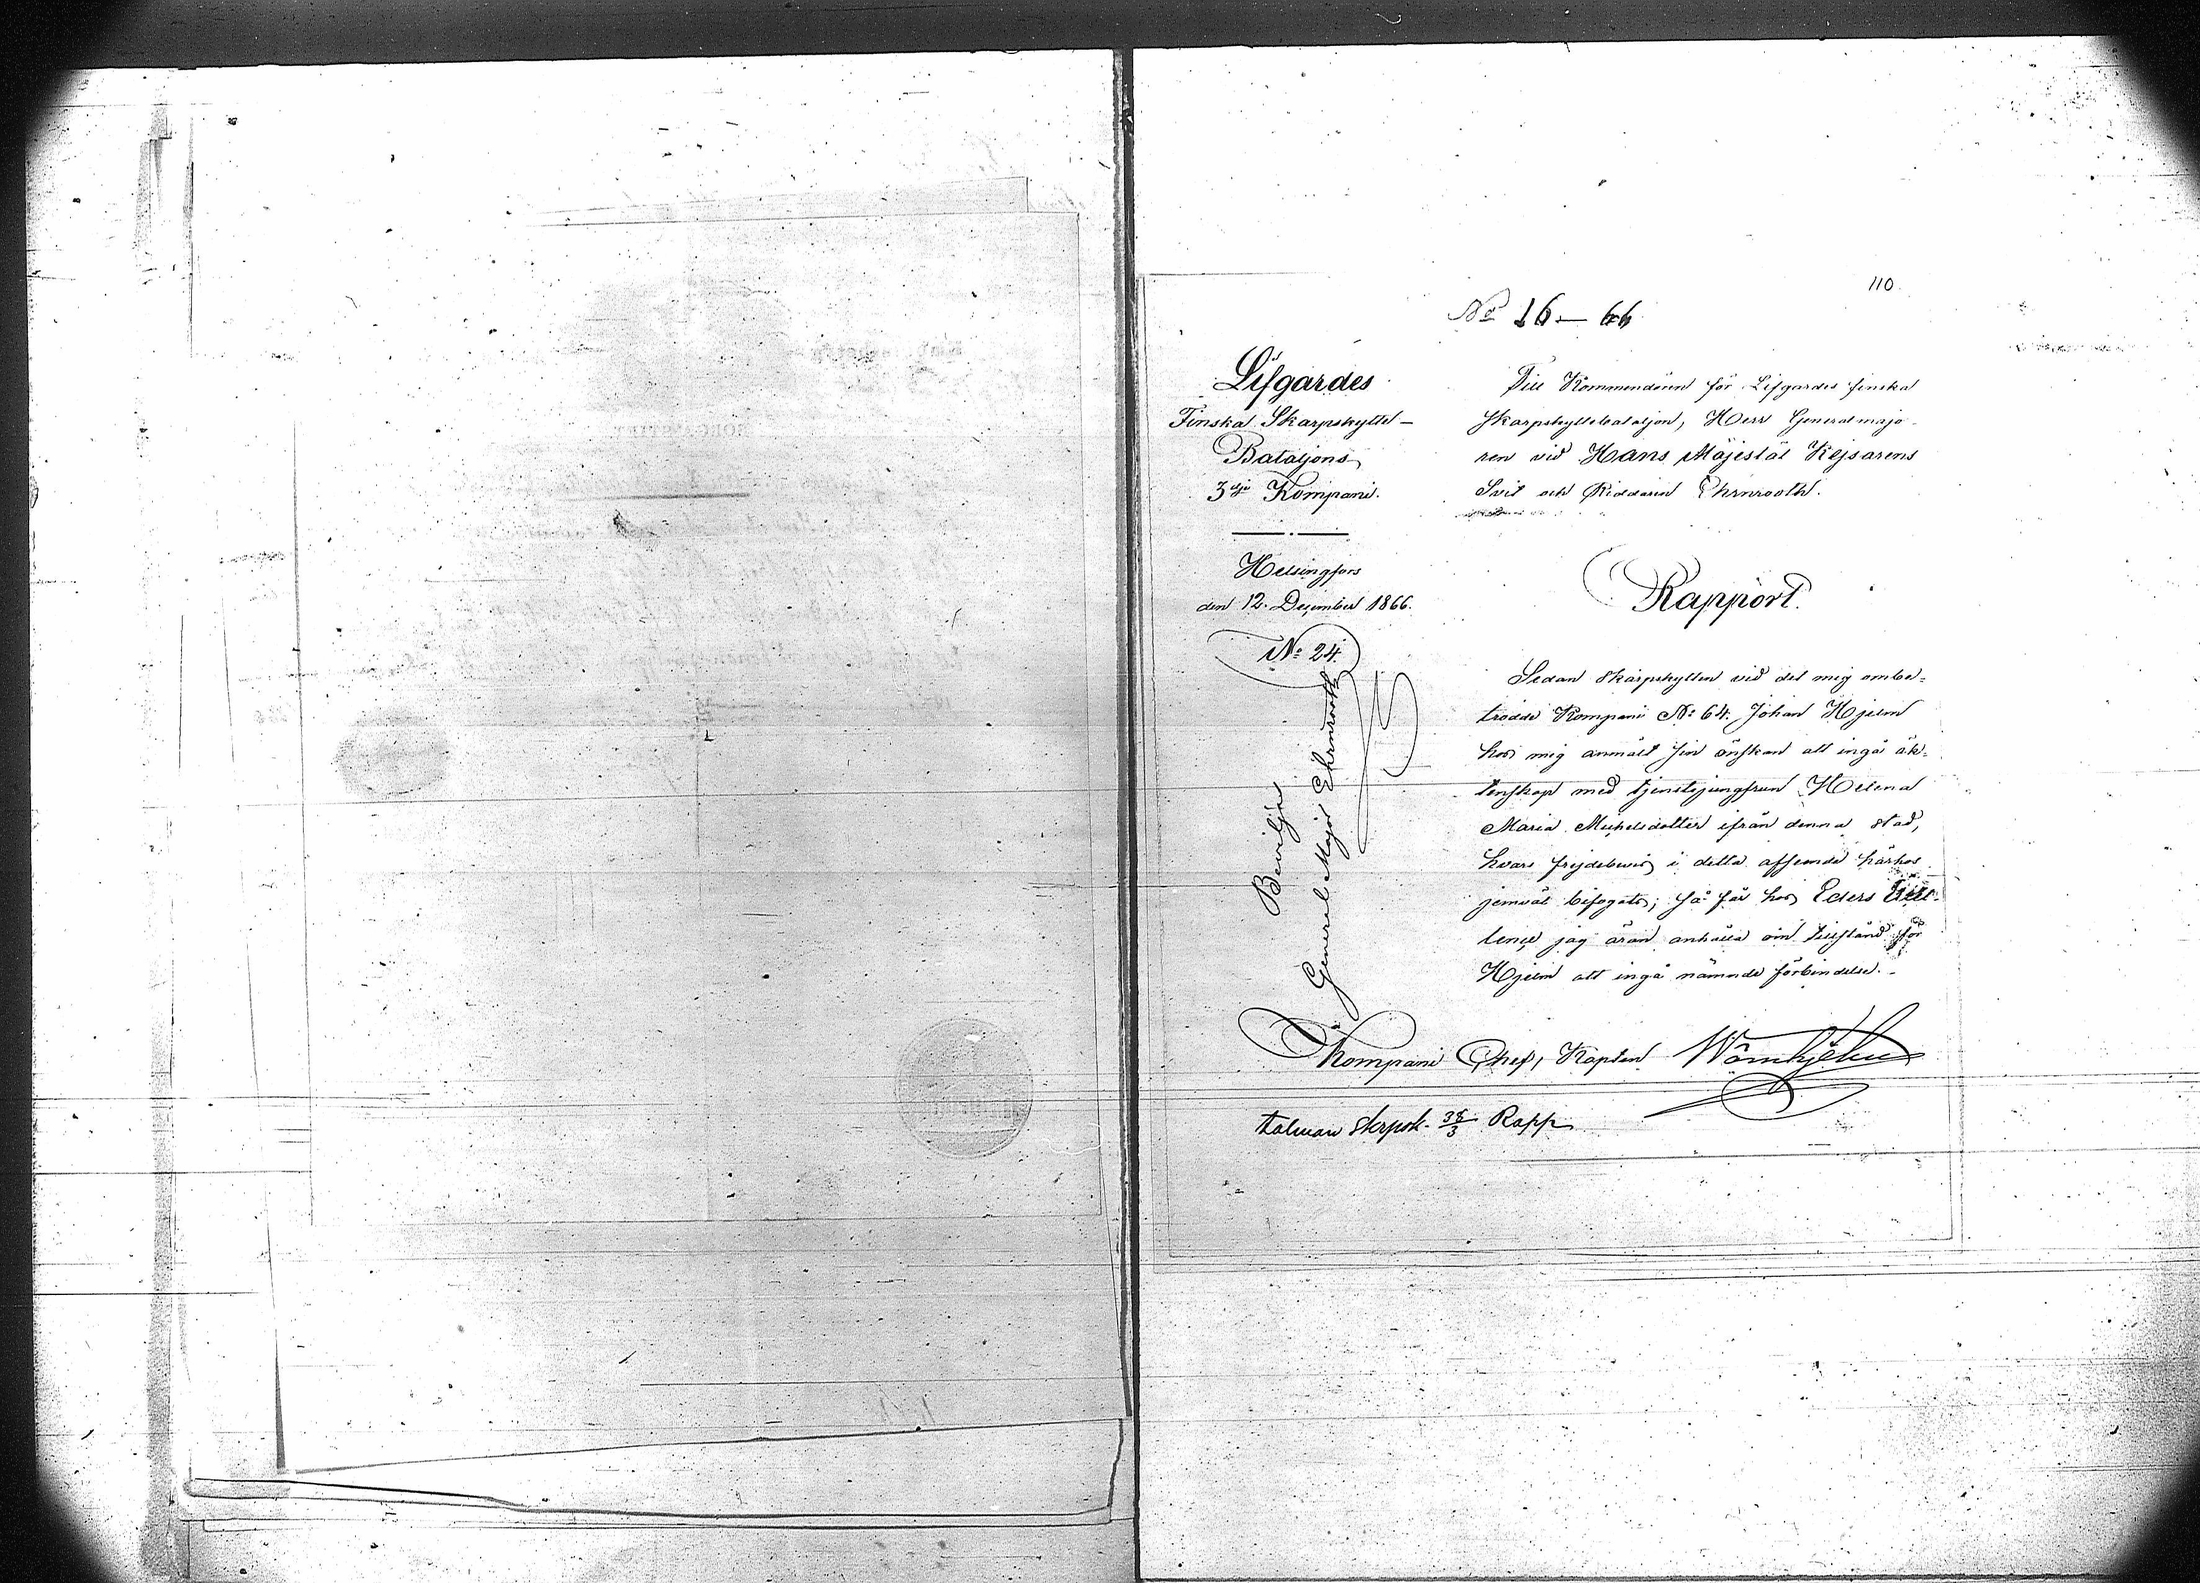 110.
No 16 – 66
Lifgardes
Finska Skarpskytte-
Bataljons
3dje Kompani.
Helsingfors
den 12. December 1866.
No 24.
Till Kommendören för Lifgardes finska
Skarpskyttebataljon, Herr Generalmajo-
ren vid Hans Majestät Kejsarens
Svit och Riddaren Ehrnrooth.
Rapport.
Sedan skarpskytten vid det mig ombe-
trodde Kompani No 64. Johan Hjelm
hos mig anmält sin önskan att ingå äk-
tenskap med tjenstejungfrun Helena
Maria Michelsdotter ifrån denna stad,
hvars frejdebevis i detta afseende härhos
jemväl bifogats; så får hos Eders Excel-
lence jag äran anhålla om tillstånd för
Hjelm att ingå nämnde förbindelse.
Beviljas
General Major Ehrnrooth
Kompani Chef, Kapten
talman Skrpsk. 38/3 Rapp